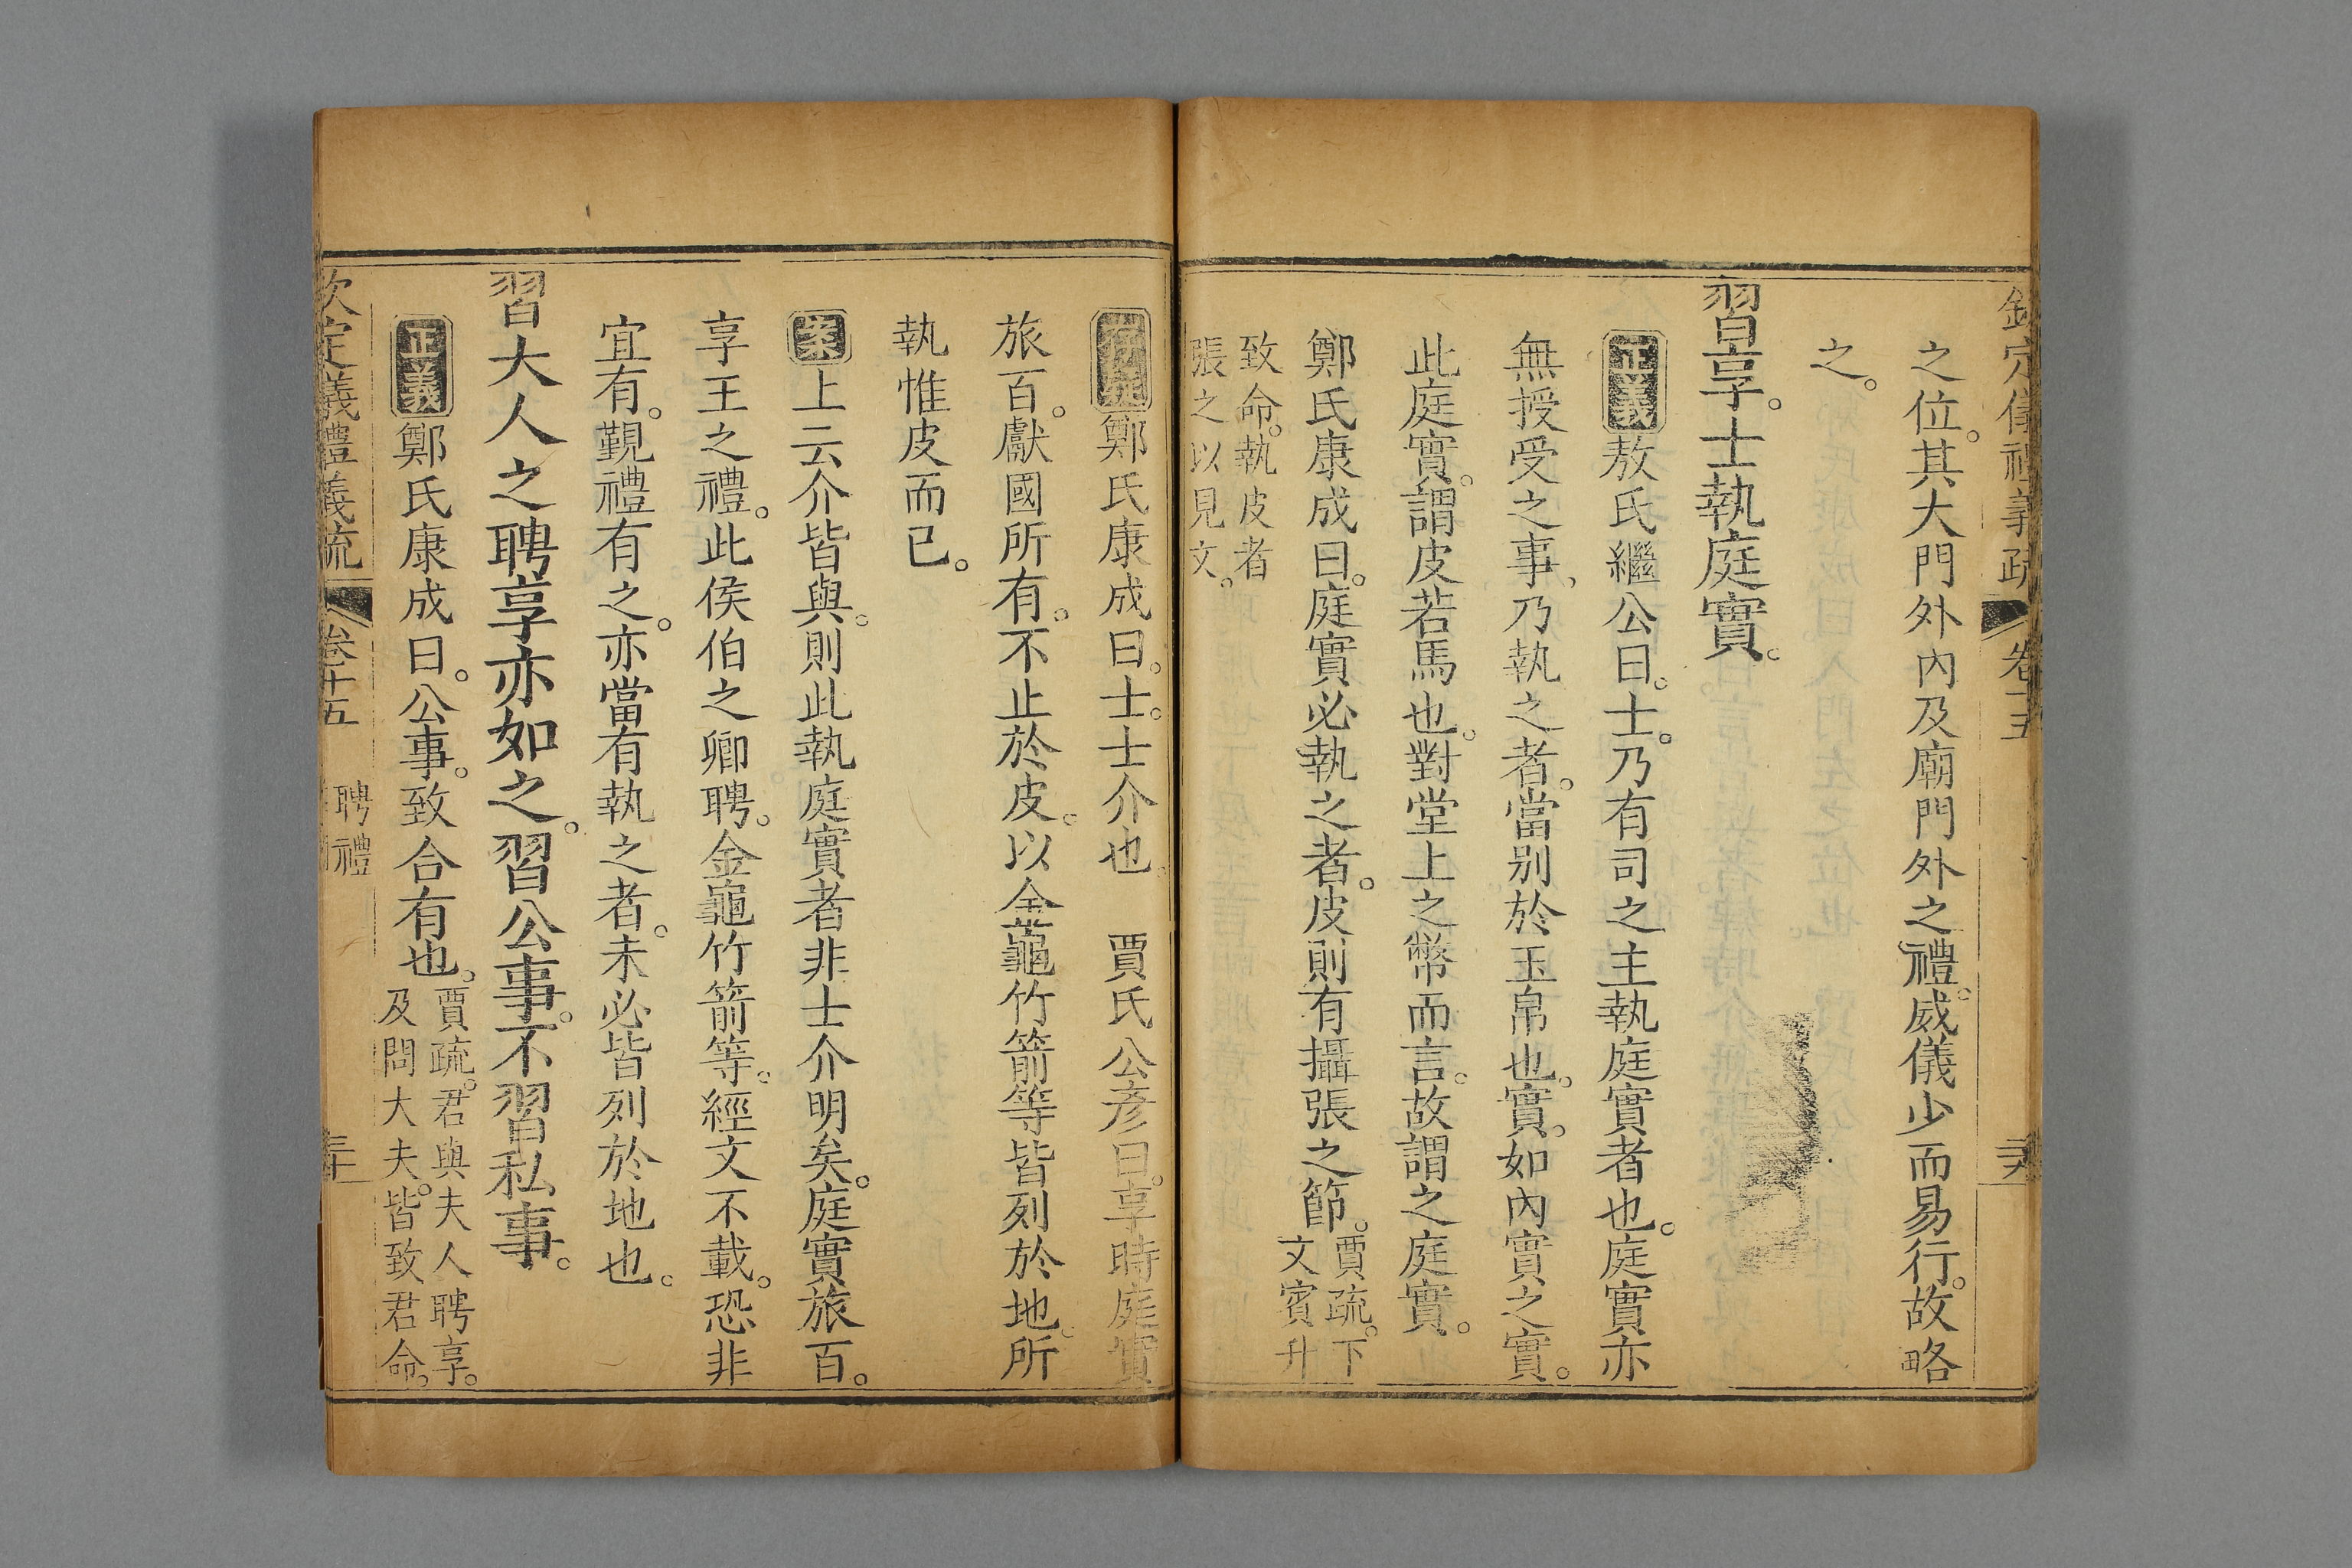 欽定儀禮義疏 卷十五 二十九
之位。其大門外內及廟門外之禮。威儀少而易行。故略
之。
習享。士執庭實。
正義敖氏繼公曰。士。乃有司之主執庭實者也。庭實亦
無授受之事、乃執之者。當別於玉帛也。實。如內實之實。
此庭實。謂皮若馬也。對堂上之幣而言。故謂之庭實。
鄭氏康成曰。庭實必執之者。皮則有攝張之節。賈疏。下文賓升
致命。執皮者
張之以見文。
存疑鄭氏康成曰。士。士介也。 賈氏公彥曰。享時庭實
旅百。獻國所有。不止於皮。以金龜竹箭等皆列於地。所
執惟皮而已。
案上云介皆與。則此執庭實者非士介明矣。庭實旅百。
享王之禮。此侯伯之卿聘。金龜竹箭等。經文不載。恐非
宜有。覲禮有之。亦當有執之者。未必皆列於地也。
習大人之聘享亦如之。習公事。不習私事。
正義鄭氏康成曰。公事。致合有也。賈疏。君與夫人聘享。及問大夫。皆致君命。
欽定儀禮義疏 卷十五 聘禮 三十